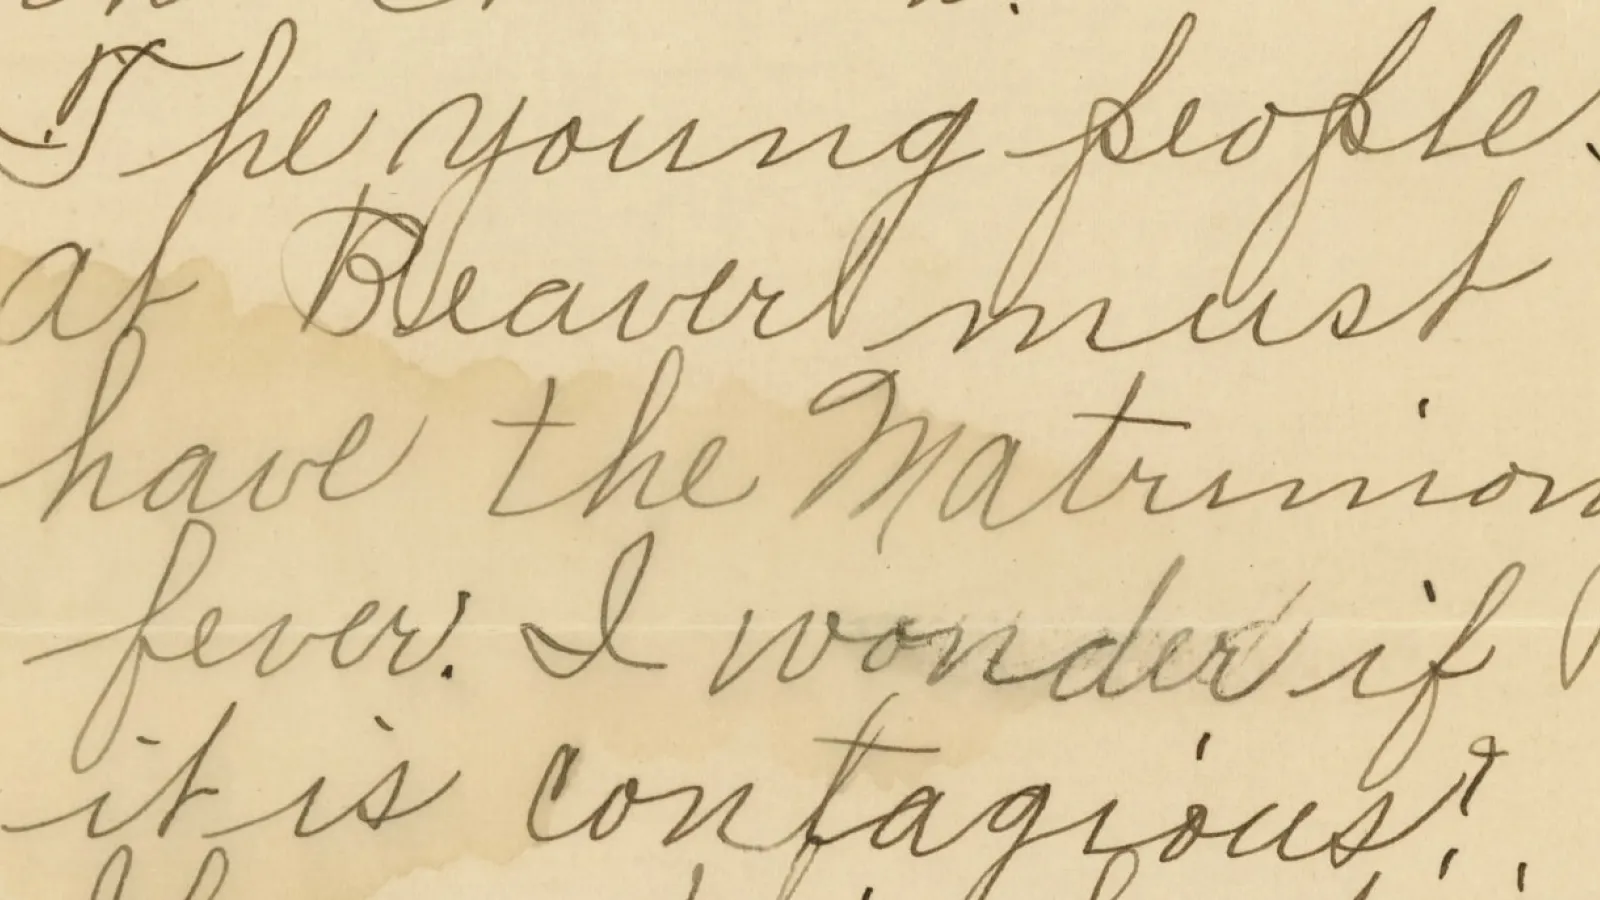 The young people
at Beaver must
have the Matrimon
fever. I wonder if
it is contagious?